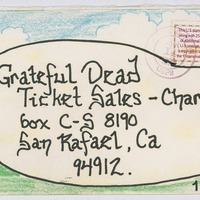 Grateful Dead
Ticket Sales - Char
box C-S 8190
San Rafael, Ca
94912.
1